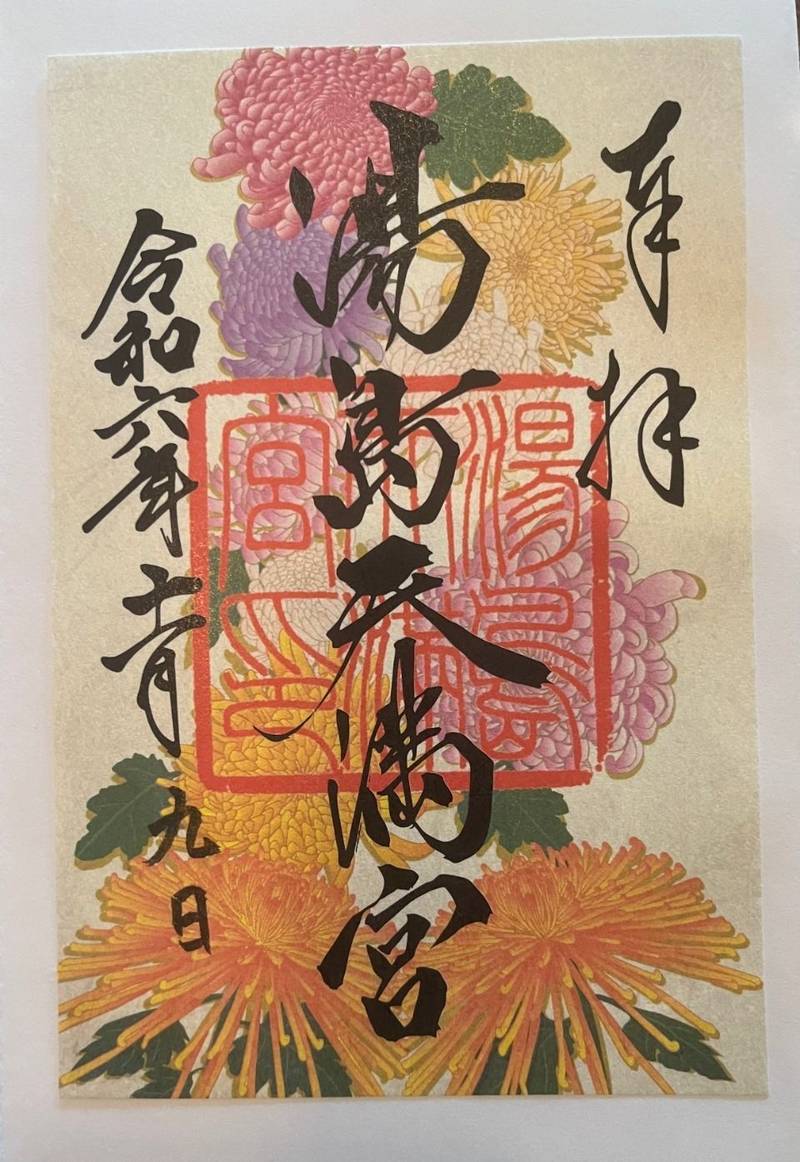 奉拝
湯島天満宮
湯島天満宮印
令和六年十一月九日